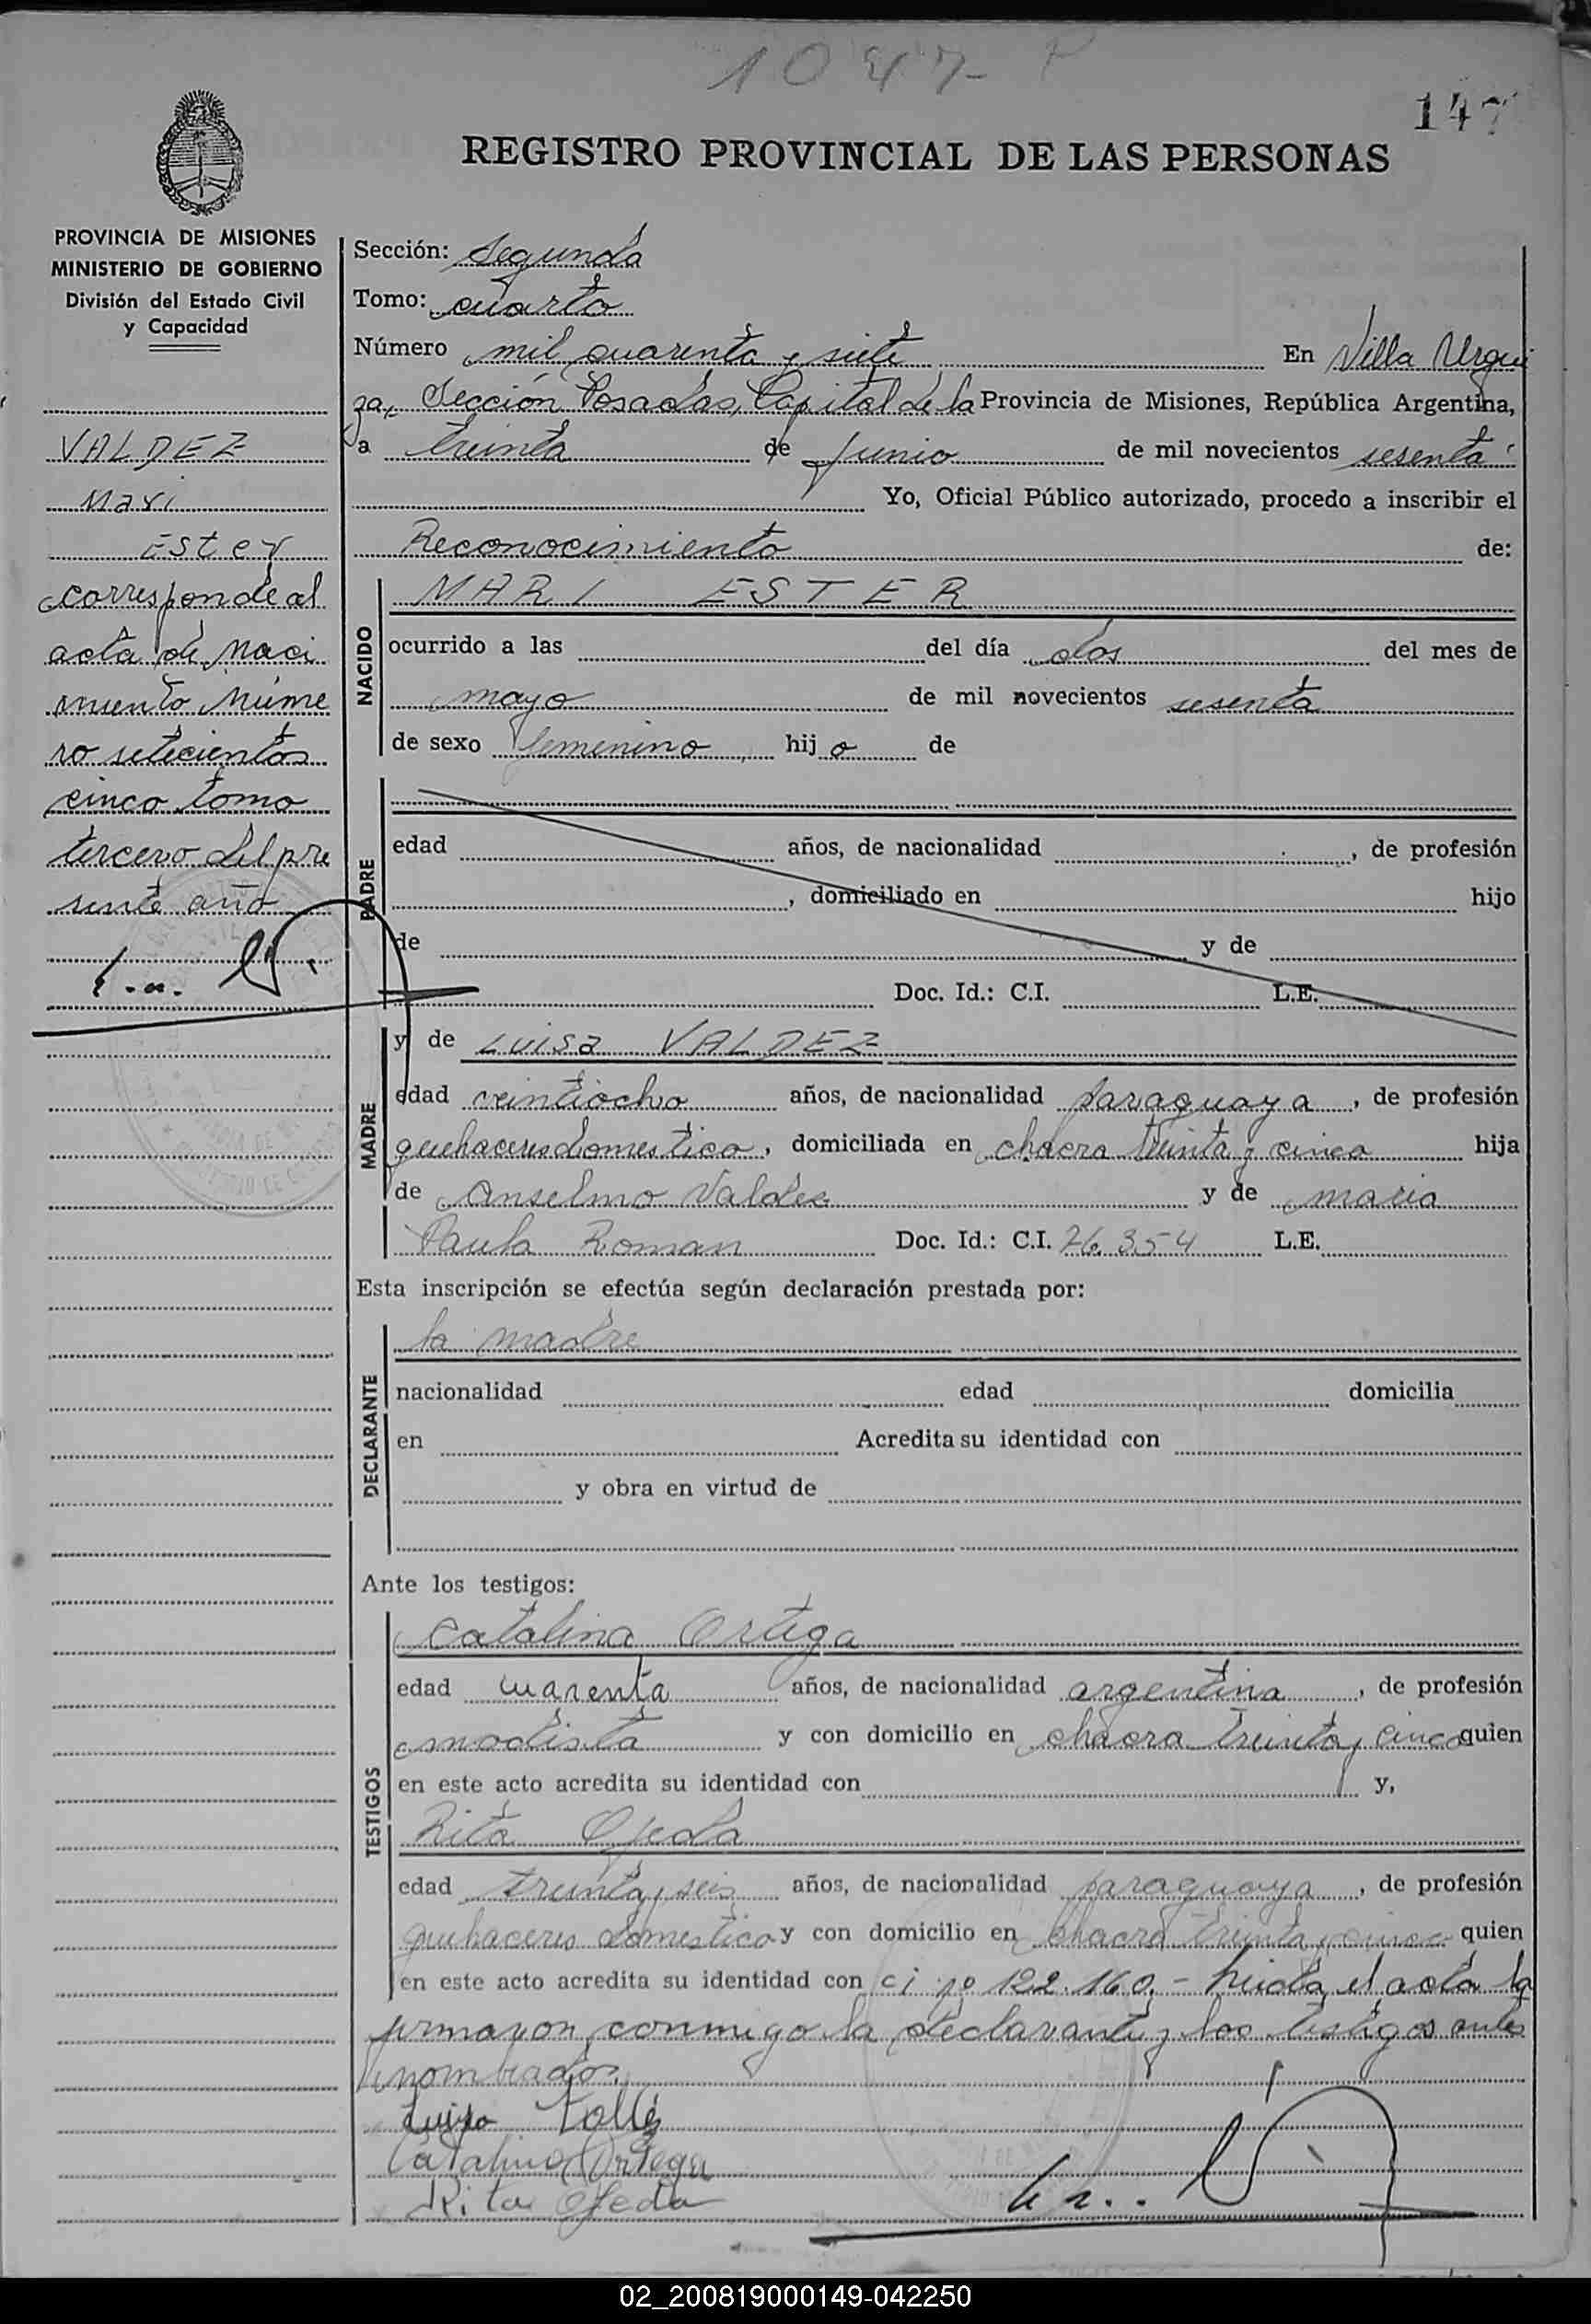 1047
147
REGISTRO PROVINCIAL DE LAS PERSONAS
PROVINCIA DE MISIONES
MINISTERIO DE GOBIERNO
División del Estado Civil
y Capacidad
VALDEZ
Mari
Ester
corresponde al
acta de naci
miento núme
ro setecientos
cinco tomo
tercero del pre
sente año
Sección: Segunda
Tomo: cuarto
Número mil cuarenta y siete En Villa Urqui
za, Sección Posadas, Capital de la Provincia de Misiones, República Argentina,
a treinta de junio de mil novecientos sesenta
Yo, Oficial Público autorizado, procedo a inscribir el
Reconocimiento de:
NACIDO
MARI ESTER
ocurrido a las del día dos del mes de
mayo de mil novecientos sesenta
de sexo femenino hija de
PADRE
edad años, de nacionalidad , de profesión
, domiciliado en hijo
de y de
Doc. Id.: C.I. L.E.
MADRE
y de Luisa VALDEZ
edad veintiocho años, de nacionalidad paraguaya, de profesión
quehaceres domestico, domiciliada en chacra treinta y cinco hija
de Anselmo Valdez y de Maria
Paula Roman Doc. Id.: C.I. 76.354 L.E.
Esta inscripción se efectúa según declaración prestada por:
DECLARANTE
la madre
nacionalidad edad domicilia
en Acredita su identidad con
y obra en virtud de
Ante los testigos:
TESTIGOS
Catalina Ortega
edad cuarenta años, de nacionalidad argentina, de profesión
modista y con domicilio en chacra treinta y cinco quien
en este acto acredita su identidad con y,
Rita Ojeda
edad treinta y seis años, de nacionalidad paraguaya, de profesión
quehaceres domestico y con domicilio en chacra treinta y cinco quien
en este acto acredita su identidad con ci nº 122.160.- leida el acta la
firmaron conmigo la declarante y los testigos antes
nombrados.
Catalina Ortega
Rita Ojeda
02_200819000149-042250